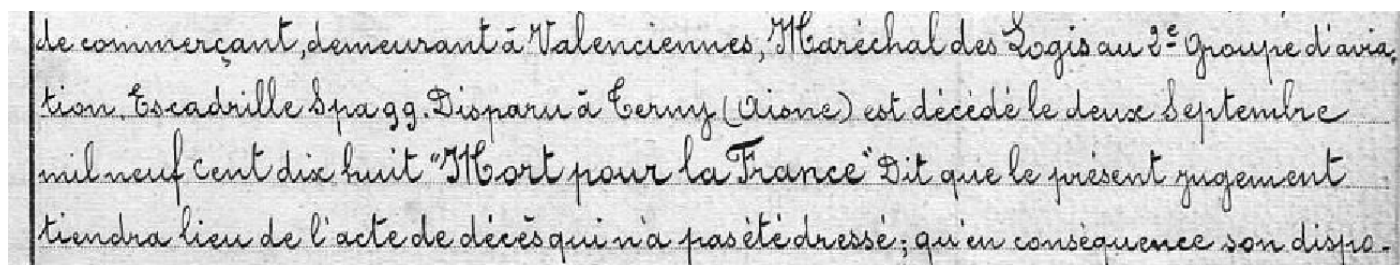 de commerçant, demeurant à Valenciennes, Maréchal des Logis au 2e Groupe d'avia-
tion. Escadrille Spa 99. Disparu à Terny (Aisne) est décédé le deux Septembre
mil neuf cent dix huit "Mort pour la France" Dit que le présent jugement
tiendra lieu de l'acte de décès qui n'a pas été dressé; qu'en conséquence son dispo-